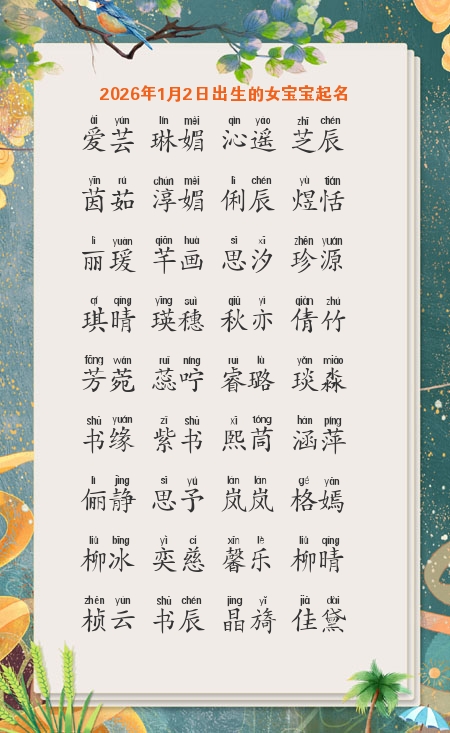 2026年1月2日出生的女宝宝起名
ài yún lín mèi qìn yáo zhī chén
爱芸 琳媚 沁遥 芝辰
yīn rú chún mèi lì chén yù tián
茵茹 淳媚 俐辰 煜恬
lì yuàn qiān huà sī xī zhēn yuán
丽瑗 芊画 思汐 珍源
qí qíng yīng suì qiū yì qiàn zhú
琪晴 瑛穗 秋亦 倩竹
fāng wǎn ruǐ níng ruì lù yǎn miǎo
芳菀 蕊咛 睿璐 琰淼
shū yuán zǐ shū xī tóng hán píng
书缘 紫书 熙茼 涵萍
lì jìng sī yǔ lán lán gé yān
俪静 思予 岚岚 格嫣
liǔ bīng yì cí xīn lè liǔ qíng
柳冰 奕慈 馨乐 柳晴
zhēn yún shū chén jīng yǐ jiā dài
桢云 书辰 晶旖 佳黛